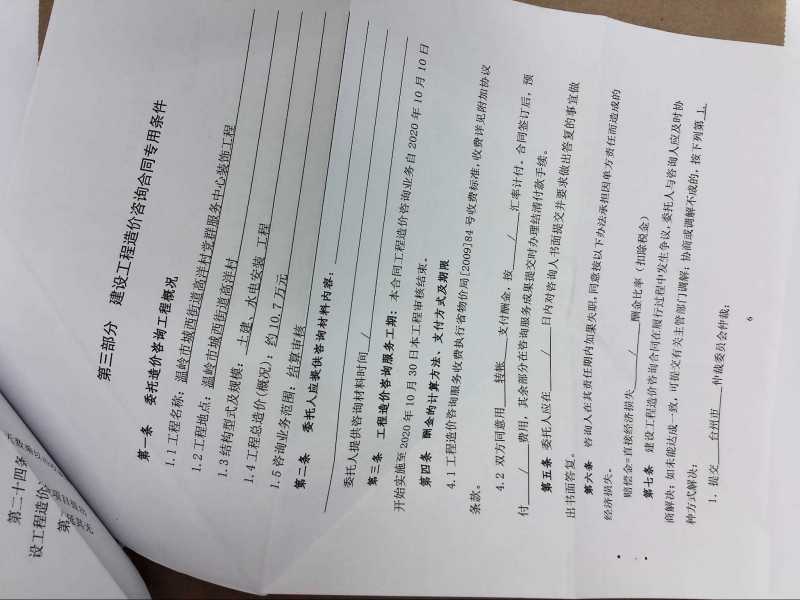 第三部分 建设工程造价咨询合同专用条件
第一条 委托造价咨询工程概况
1.1工程名称：温岭市城西街道高洋村党群服务中心装饰工程
1.2工程地点：温岭市城西街道高洋村
1.3结构型式及规模： 土建、水电安装 工程
1.4工程总造价(概况)：约10.7万元
1.5咨询业务范围：结算审核
第二条 委托人应提供咨询材料内容：
委托人提供咨询材料时间 /
第三条 工程造价咨询服务工期：本合同工程造价咨询业务自2020年10月10日
开始实施至2020年10月30日本工程审核结束。
第四条 酬金的计算方法、支付方式及期限
4.1工程造价咨询服务收费执行省物价局[2009]84号收费标准，收费详见附加协议
条款。
4.2 双方同意用 转账 支付酬金，按 / 汇率计付。合同签订后，预
付 / 费用，其余部分在咨询服务成果提交时办理结清付款手续。
第五条 委托人应在 / 日内对咨询人书面提交并要求做出答复的事宜做
出书面答复。
第六条 咨询人在其责任期内如果失职，同意按以下办法承担因单方责任而造成的
经济损失。
赔偿金=直接经济损失 / 酬金比率（扣除税金）
第七条 建设工程造价咨询合同在履行过程中发生争议，委托人与咨询人应及时协
商解决；如未能达成一致，可提交有关主管部门调解；协商或调解不成的，按下列第1
种方式解决：
1、提交 台州市 仲裁委员会仲裁；
6
第二十四条
设工程造价